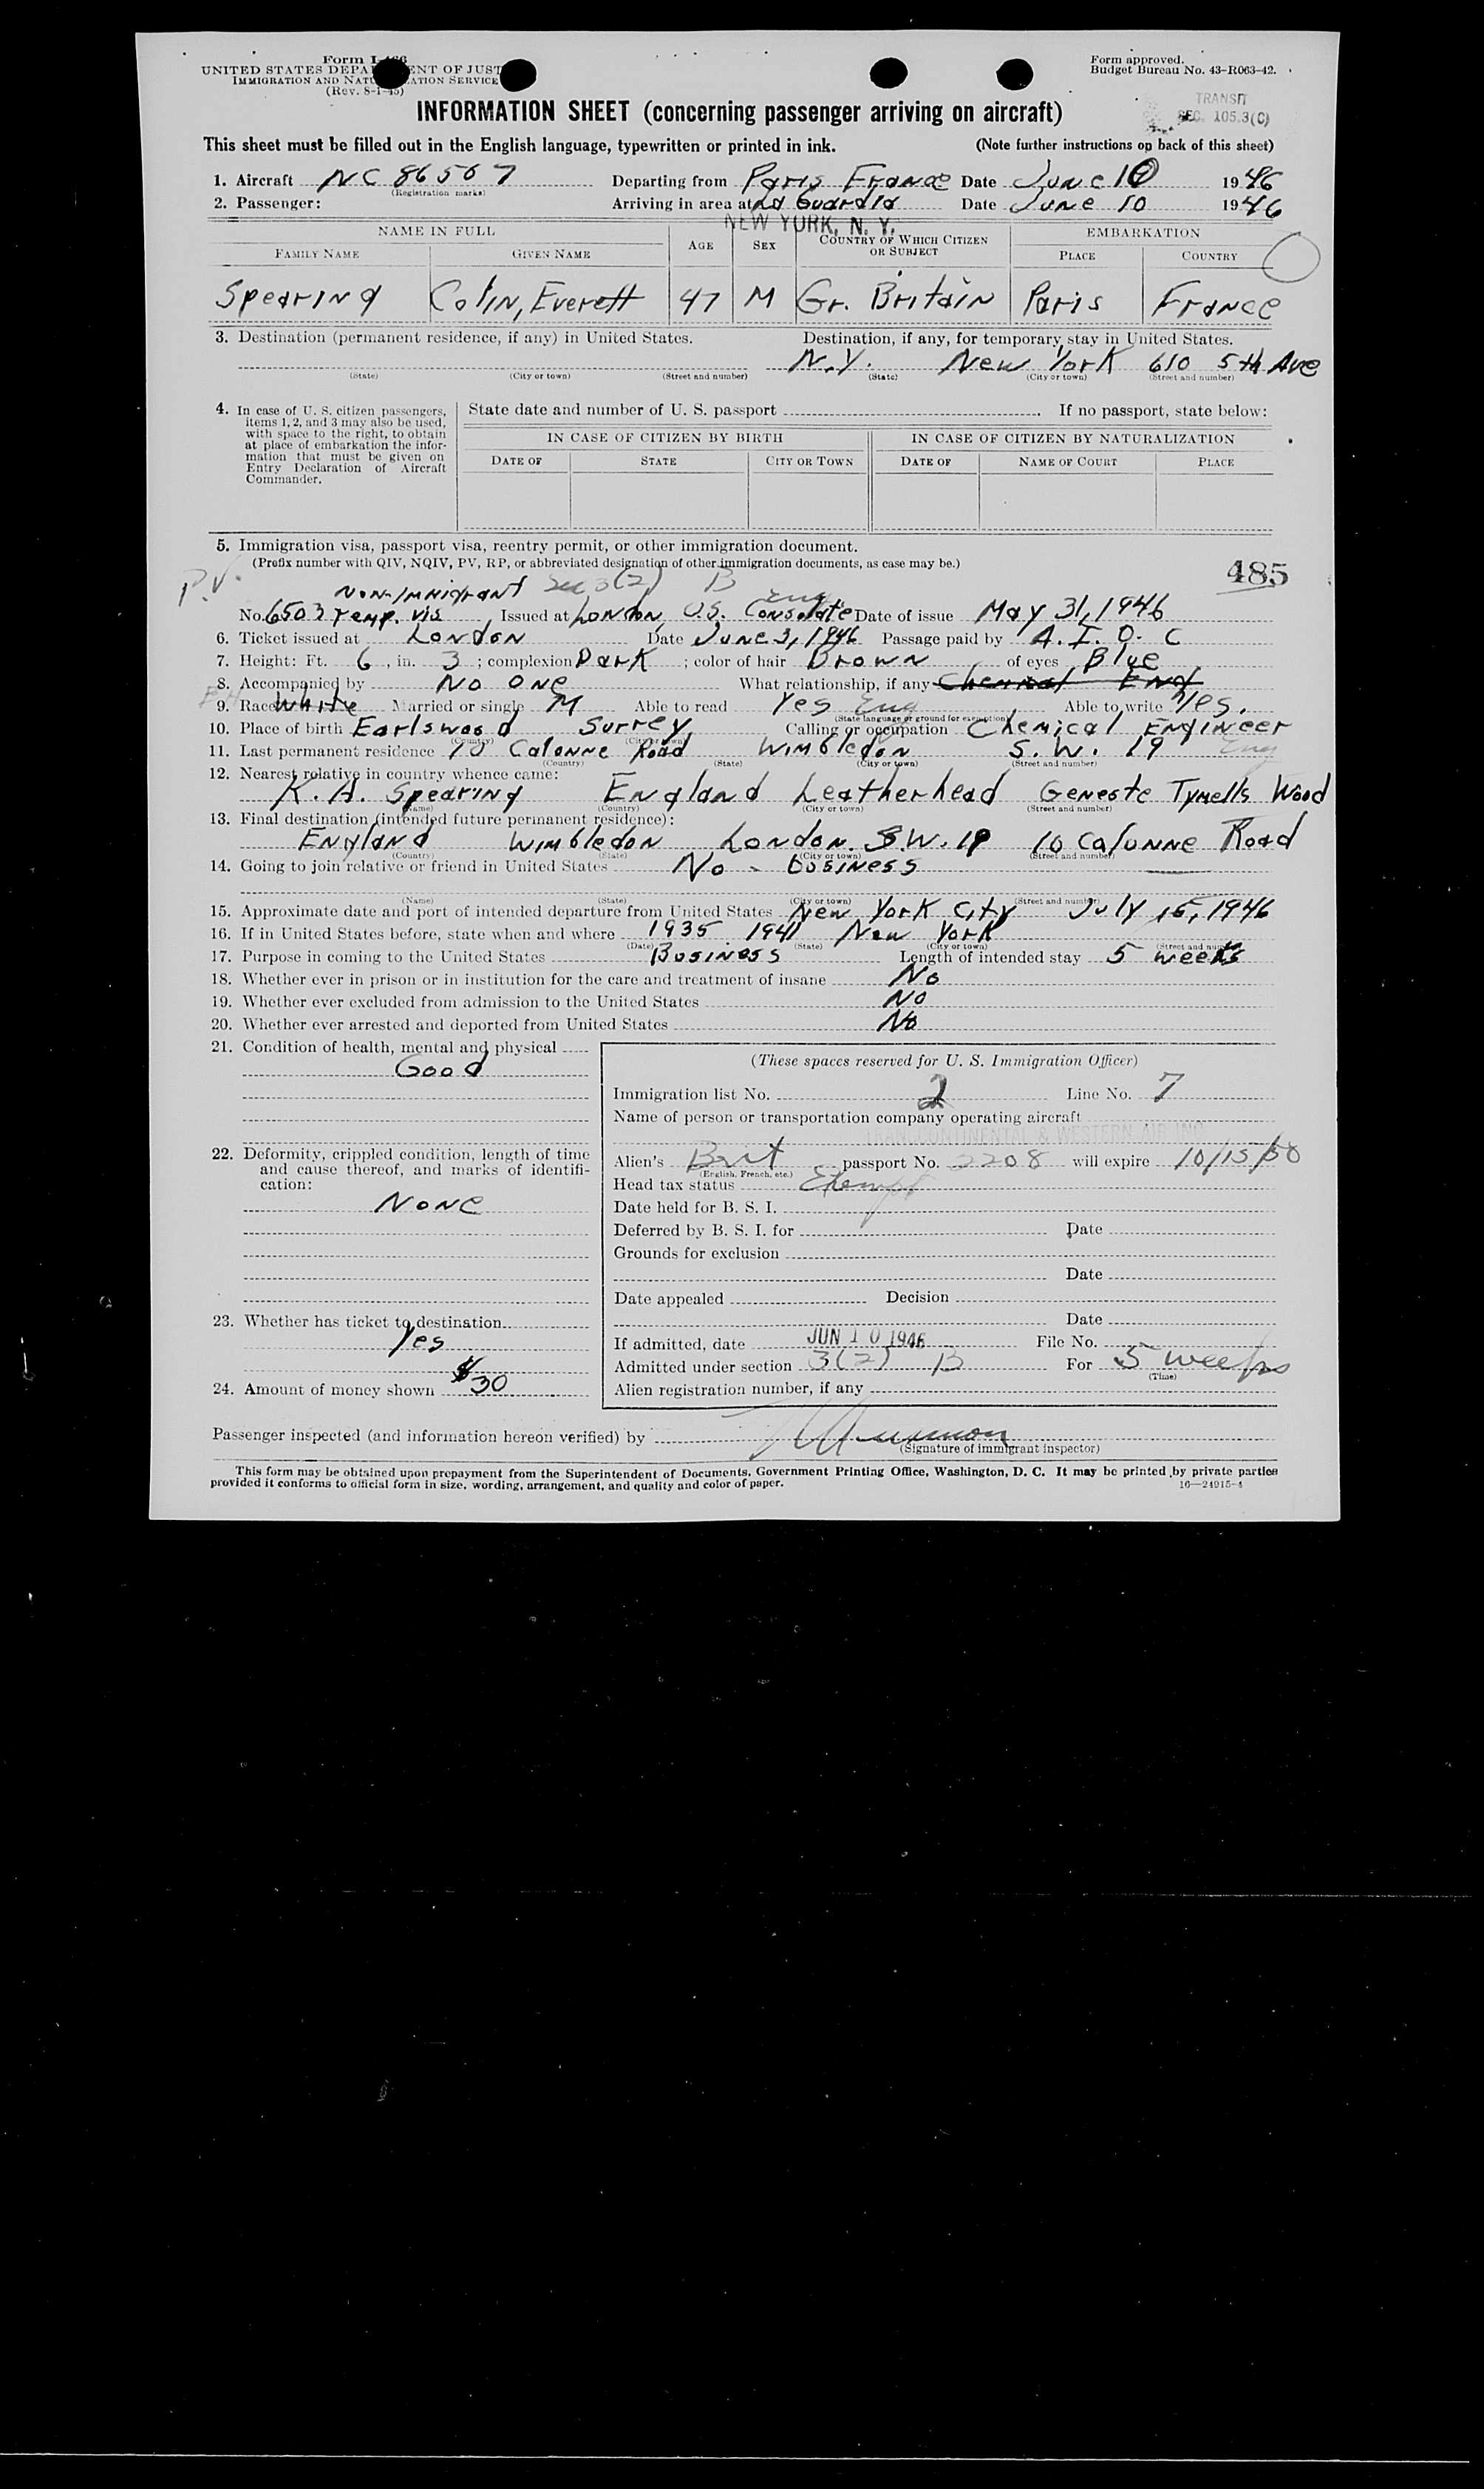 Form I-466
UNITED STATES DEPARTMENT OF JUSTICE
IMMIGRATION AND NATURALIZATION SERVICE
(Rev. 8-1-45)
Form approved.
Budget Bureau No. 43-R063-42.
TRANSIT
SEC. 105.3(C)
INFORMATION SHEET (concerning passenger arriving on aircraft)
This sheet must be filled out in the English language, typewritten or printed in ink. (Note further instructions on back of this sheet)
1. Aircraft NC 86507 (Registration marks) Departing from Paris France Date June 10 1946
2. Passenger: Arriving in area at La Guardia Date June 10 1946
NEW YORK, N. Y.
NAME IN FULL AGE SEX COUNTRY OF WHICH CITIZEN OR SUBJECT EMBARKATION
FAMILY NAME GIVEN NAME PLACE COUNTRY
Spearing Colin, Everett 47 M Gr. Britain Paris France
3. Destination (permanent residence, if any) in United States. Destination, if any, for temporary stay in United States.
N.Y. New York 610 5th Ave
(State) (City or town) (Street and number) (State) (City or town) (Street and number)
4. In case of U. S. citizen passengers, items 1, 2, and 3 may also be used, with space to the right, to obtain at place of embarkation the information that must be given on Entry Declaration of Aircraft Commander.
State date and number of U. S. passport If no passport, state below:
IN CASE OF CITIZEN BY BIRTH IN CASE OF CITIZEN BY NATURALIZATION
DATE OF STATE CITY OR TOWN DATE OF NAME OF COURT PLACE
5. Immigration visa, passport visa, reentry permit, or other immigration document.
(Prefix number with QIV, NQIV, PV, RP, or abbreviated designation of other immigration documents, as case may be.)
485
P.V. Non-Immigrant Sec 3(2) B
Eng
No. 6503 Temp. vis Issued at London, U.S. Consulate Date of issue May 31, 1946
6. Ticket issued at London Date June 3, 1946 Passage paid by A. I. O. C
7. Height: Ft. 6, in. 3; complexion Dark; color of hair Brown of eyes Blue
8. Accompanied by No one What relationship, if any Chemical Eng
9. Race White Married or single M Able to read Yes Eng Able to write Yes.
(State language or ground for exemption)
10. Place of birth Earlswood Surrey Calling or occupation Chemical Engineer
(Country) (City or town)
11. Last permanent residence 10 Calonne Road Wimbledon S. W. 19 Eng
(Country) (State) (City or town) (Street and number)
12. Nearest relative in country whence came:
K. A. Spearing England Leatherhead Geneste Tyrrells Wood
(Name) (Country) (City or town) (Street and number)
13. Final destination (intended future permanent residence):
England Wimbledon London. S.W. 19 10 Calonne Road
(Country) (State) (City or town) (Street and number)
14. Going to join relative or friend in United States No - business
(Name) (State) (City or town) (Street and number)
15. Approximate date and port of intended departure from United States New York City July 15, 1946
16. If in United States before, state when and where 1935 1941 New York
(Date) (State) (City or town) (Street and number)
17. Purpose in coming to the United States Business Length of intended stay 5 weeks
18. Whether ever in prison or in institution for the care and treatment of insane No
19. Whether ever excluded from admission to the United States No
20. Whether ever arrested and deported from United States No
21. Condition of health, mental and physical
Good
22. Deformity, crippled condition, length of time and cause thereof, and marks of identification:
None
23. Whether has ticket to destination
Yes
24. Amount of money shown $30
(These spaces reserved for U. S. Immigration Officer)
Immigration list No. 2 Line No. 7
Name of person or transportation company operating aircraft
TRANSCONTINENTAL & WESTERN AIR INC
Alien's Brit passport No. 2208 will expire 10/15/50
(English, French, etc.)
Head tax status Exempt
Date held for B. S. I.
Deferred by B. S. I. for Date
Grounds for exclusion
Date
Date appealed Decision
Date
If admitted, date JUN 10 1946 File No.
Admitted under section 3(2) B For 5 weeks
(Time)
Alien registration number, if any
Passenger inspected (and information hereon verified) by
(Signature of immigrant inspector)
This form may be obtained upon prepayment from the Superintendent of Documents, Government Printing Office, Washington, D. C. It may be printed by private parties
provided it conforms to official form in size, wording, arrangement, and quality and color of paper. 16—24915-4